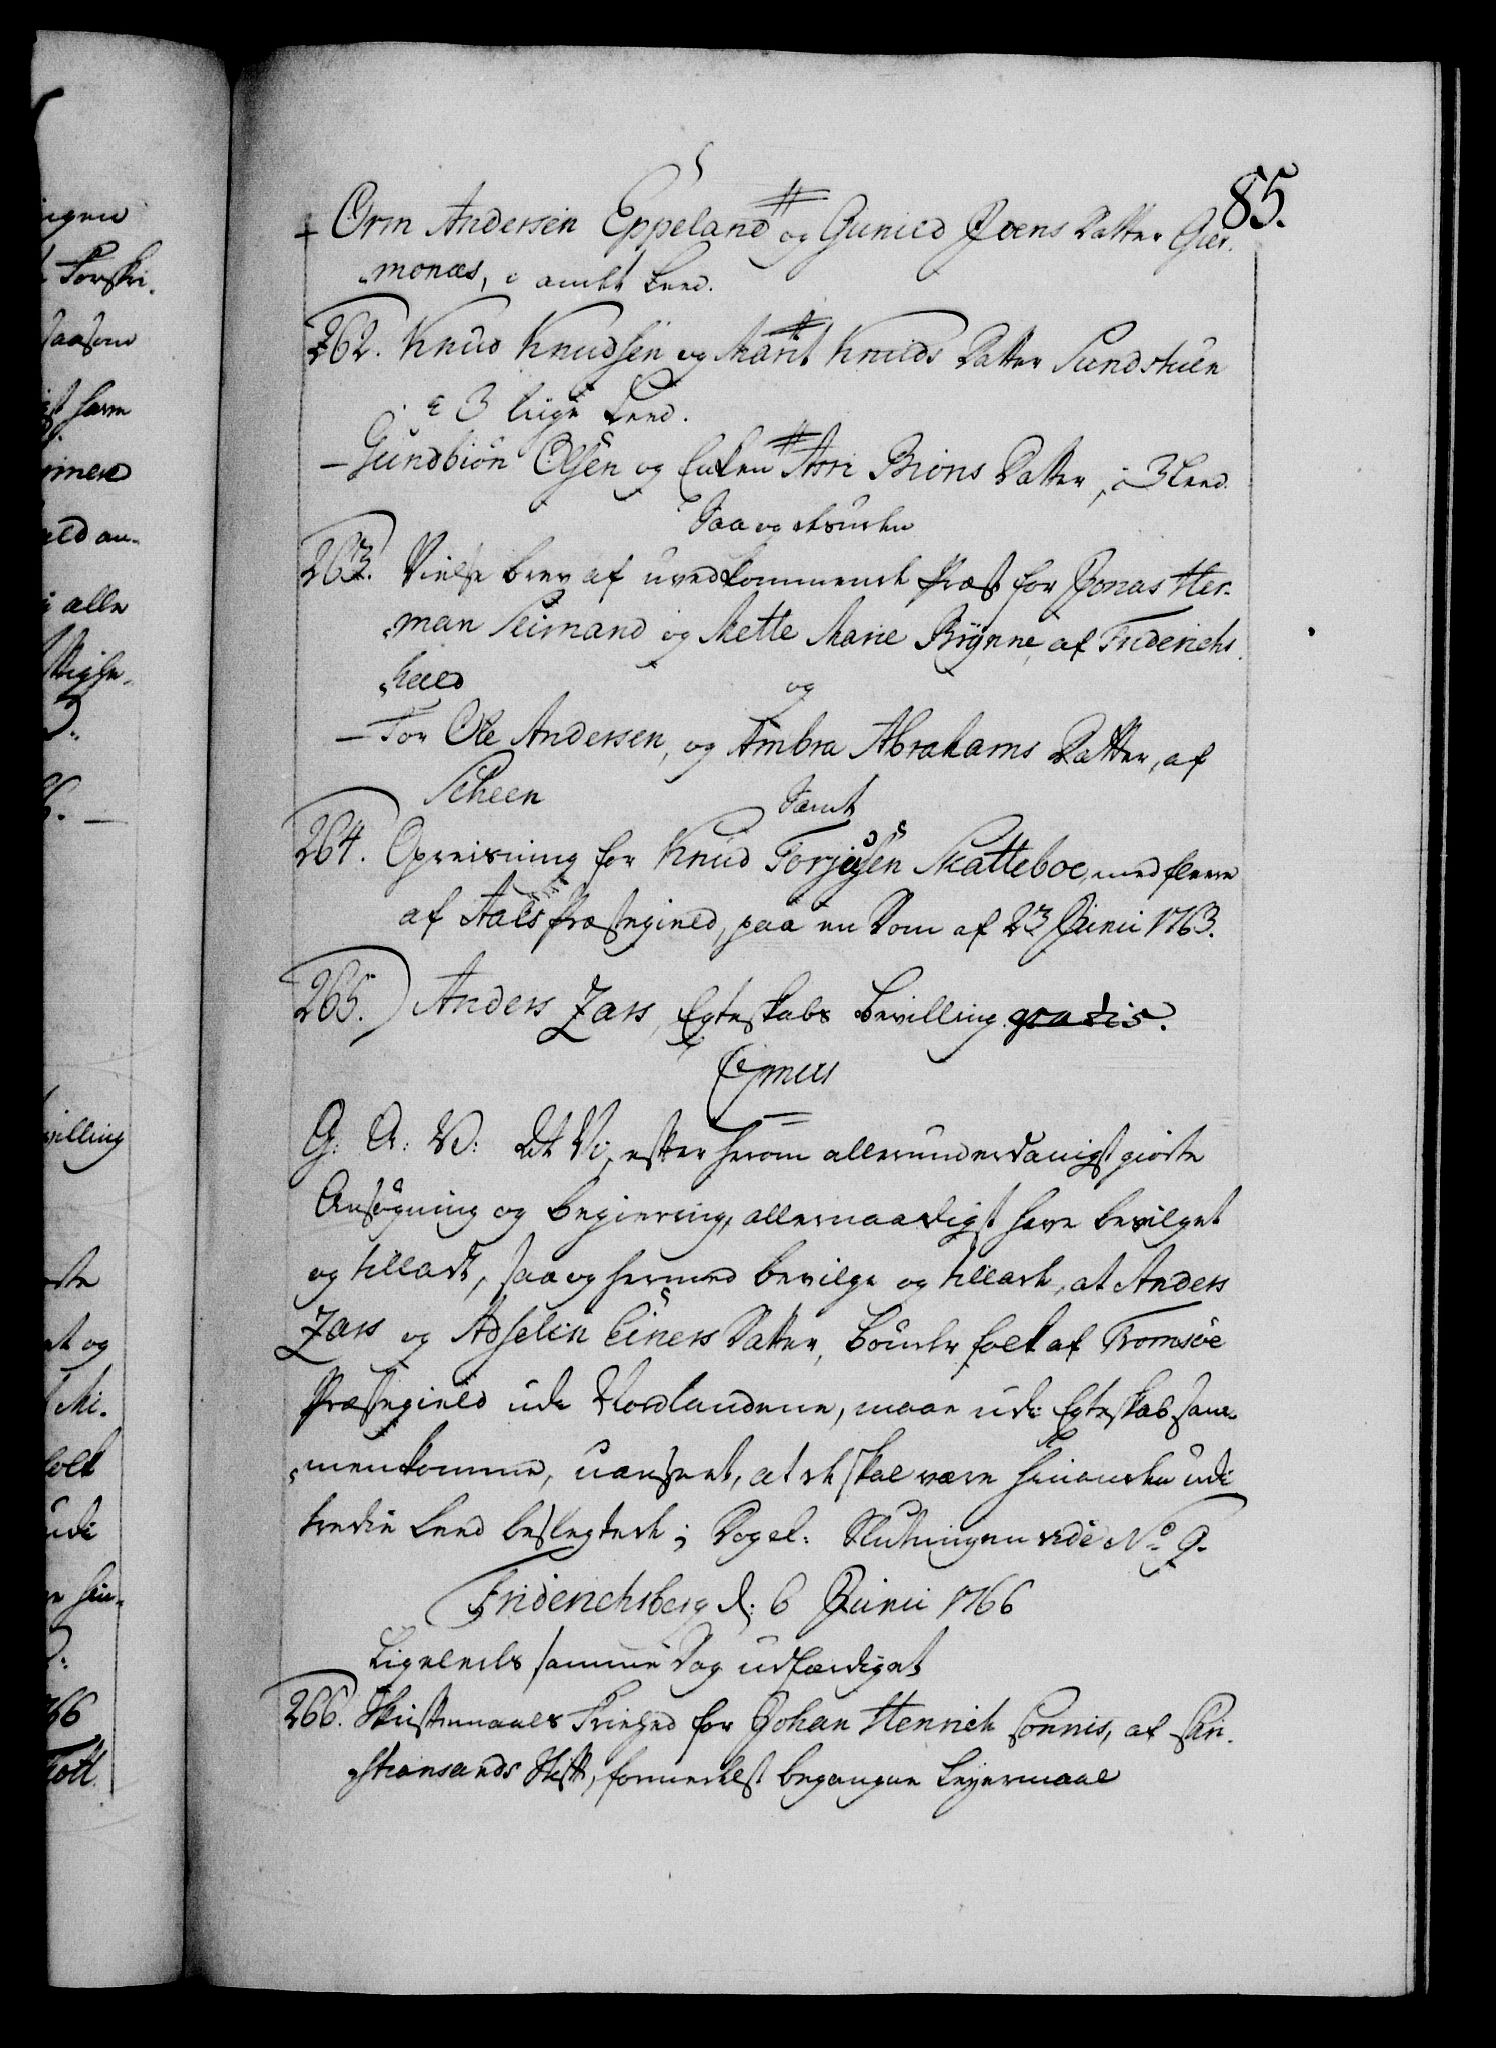 85.
Orm Andersen Eppeland og Gunild Joens Datter Gier-
monæs, i andet Leed.
262. Knud Knudsen og Marit Knuds Datter Sundstuen
i 3 liige Leed.
– Gundbiön Olsen og Enken Asri Biöns Datter, i 3 Leed.
Saa og desuden
263. Vielse brev af uvedkommende Præst for Jonas Her-
man Seimand og Mette Marie Brÿnne, af Friderichs
hald og
– For Ole Andersen, og Ambra Abrahams Datter, af
Scheen Samt
264. Opreisning for Knud Torjusen Skatteboe, med flere
af Aals Præstegield, paa en Dom af 23 Junii 1763.
265. Anders Zars, Egteskabs bevilling gratis.
G: A: V: At Vi, efter herom allerunderdanigst giorte
Ansøgning og begiering, allernaadigst have bevilget
og tilladt, saa og hermed bevilge og tillade, at Anders
Zars og Adselin Einers Datter, bönder folk af Tromsöe
Præstegield udi Nordlandene, maae udi Egteskab sam-
menkomme, uanseet, at de skal være hinanden udi
tredie Leed beslegtede; Dogel: Slutningen vide No 9.
Friderichsberg d: 6 Junii 1766
Ligeledes samme Dag udfærdiget
266. Skriftemaals Friehed for Johan Henrich Sonnis, af Chri-
stiansands Stift, formedelst begangne Leyermaal